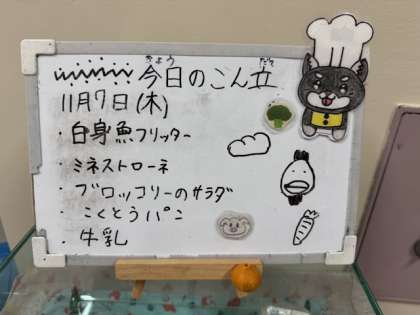 今日のこん立
きょう
だて
11月7日(木)
・白身魚フリッター
・ミネストローネ
・ブロッコリーのサラダ
・こくとうパン
・牛乳